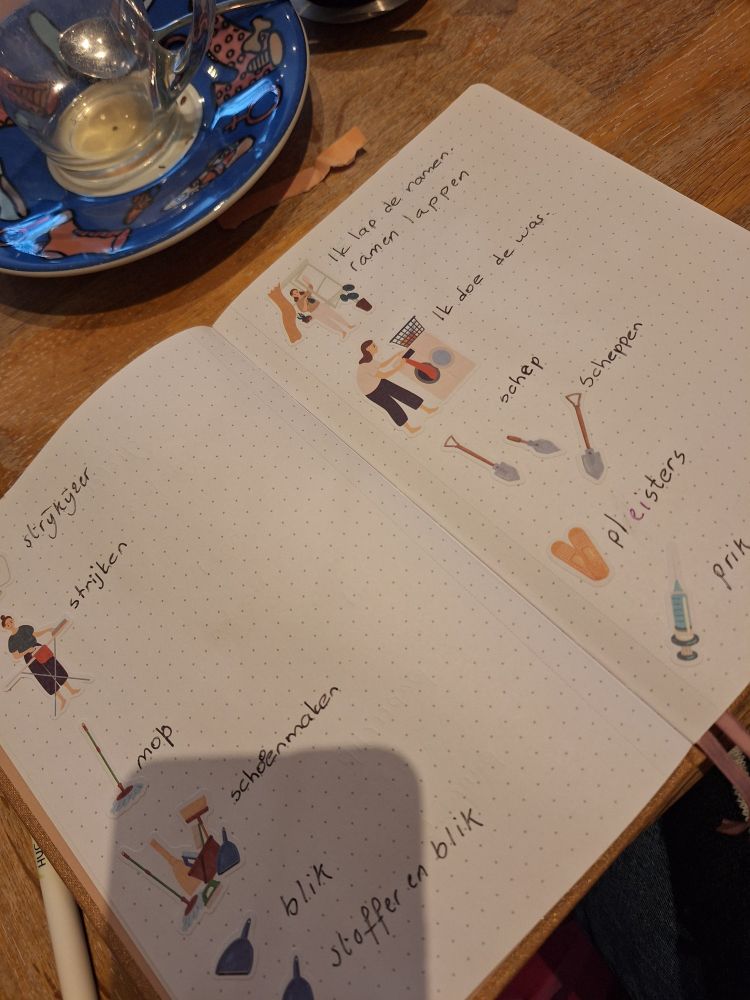 strijkijzer
strijken
mop
schoenmaken
blik
stoffer en blik
Ik lap de ramen.
ramen lappen
Ik doe de was.
schep
scheppen
pleisters
prik